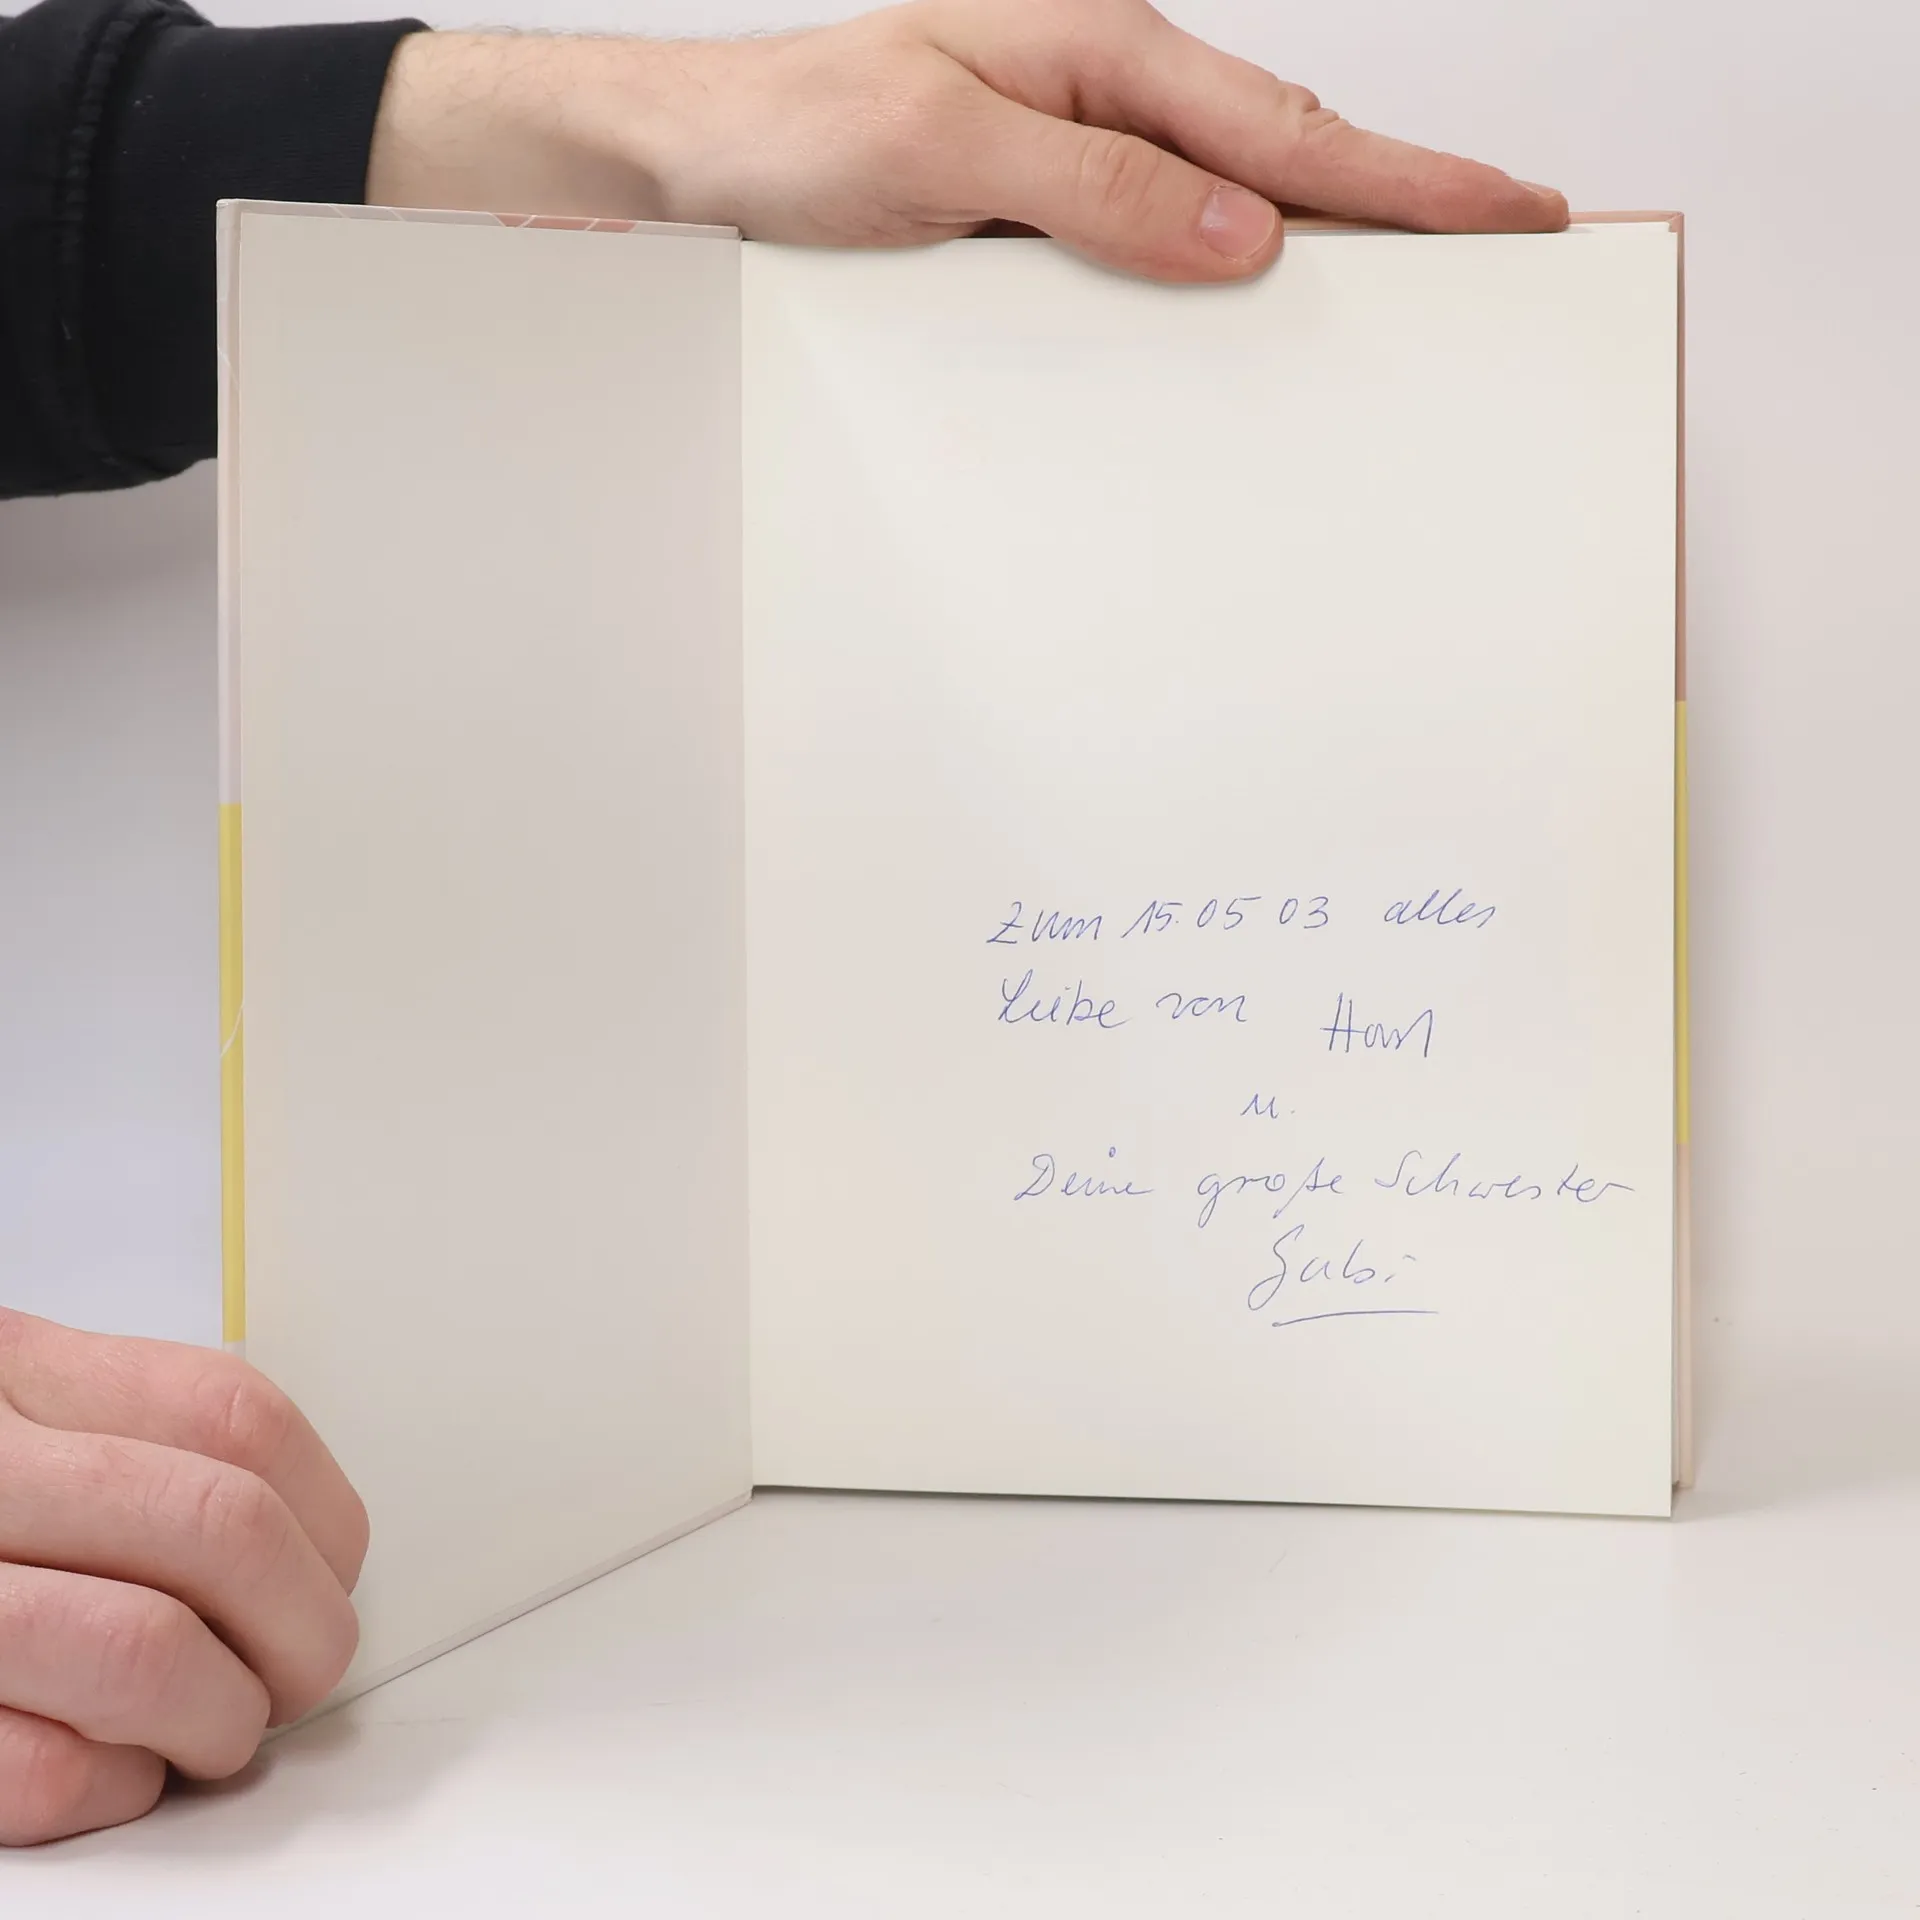 Zum 15.05 03 alles
Liebe von Horst
u.
Deine große Schwester
Gabi